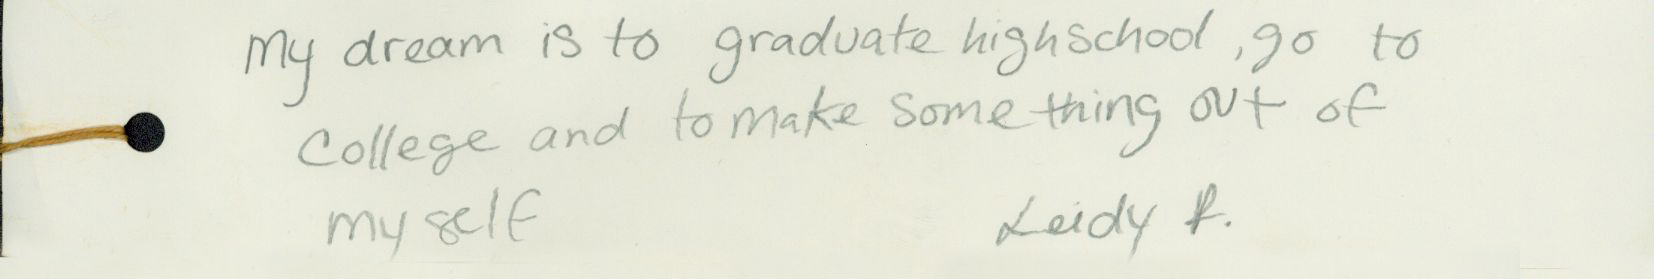 My dream is to graduate highschool, go to
College and to make something out of
my self
Leidy R.